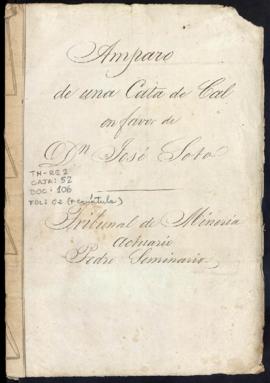 Amparo
de una Cata de Cal
en favor de
Dn José Soto
TM-RE2
CAJA: 52
DOC: 106
FOL: 02 (+ carátula)
Tribunal de Mineria
Actuario
Pedro Seminario